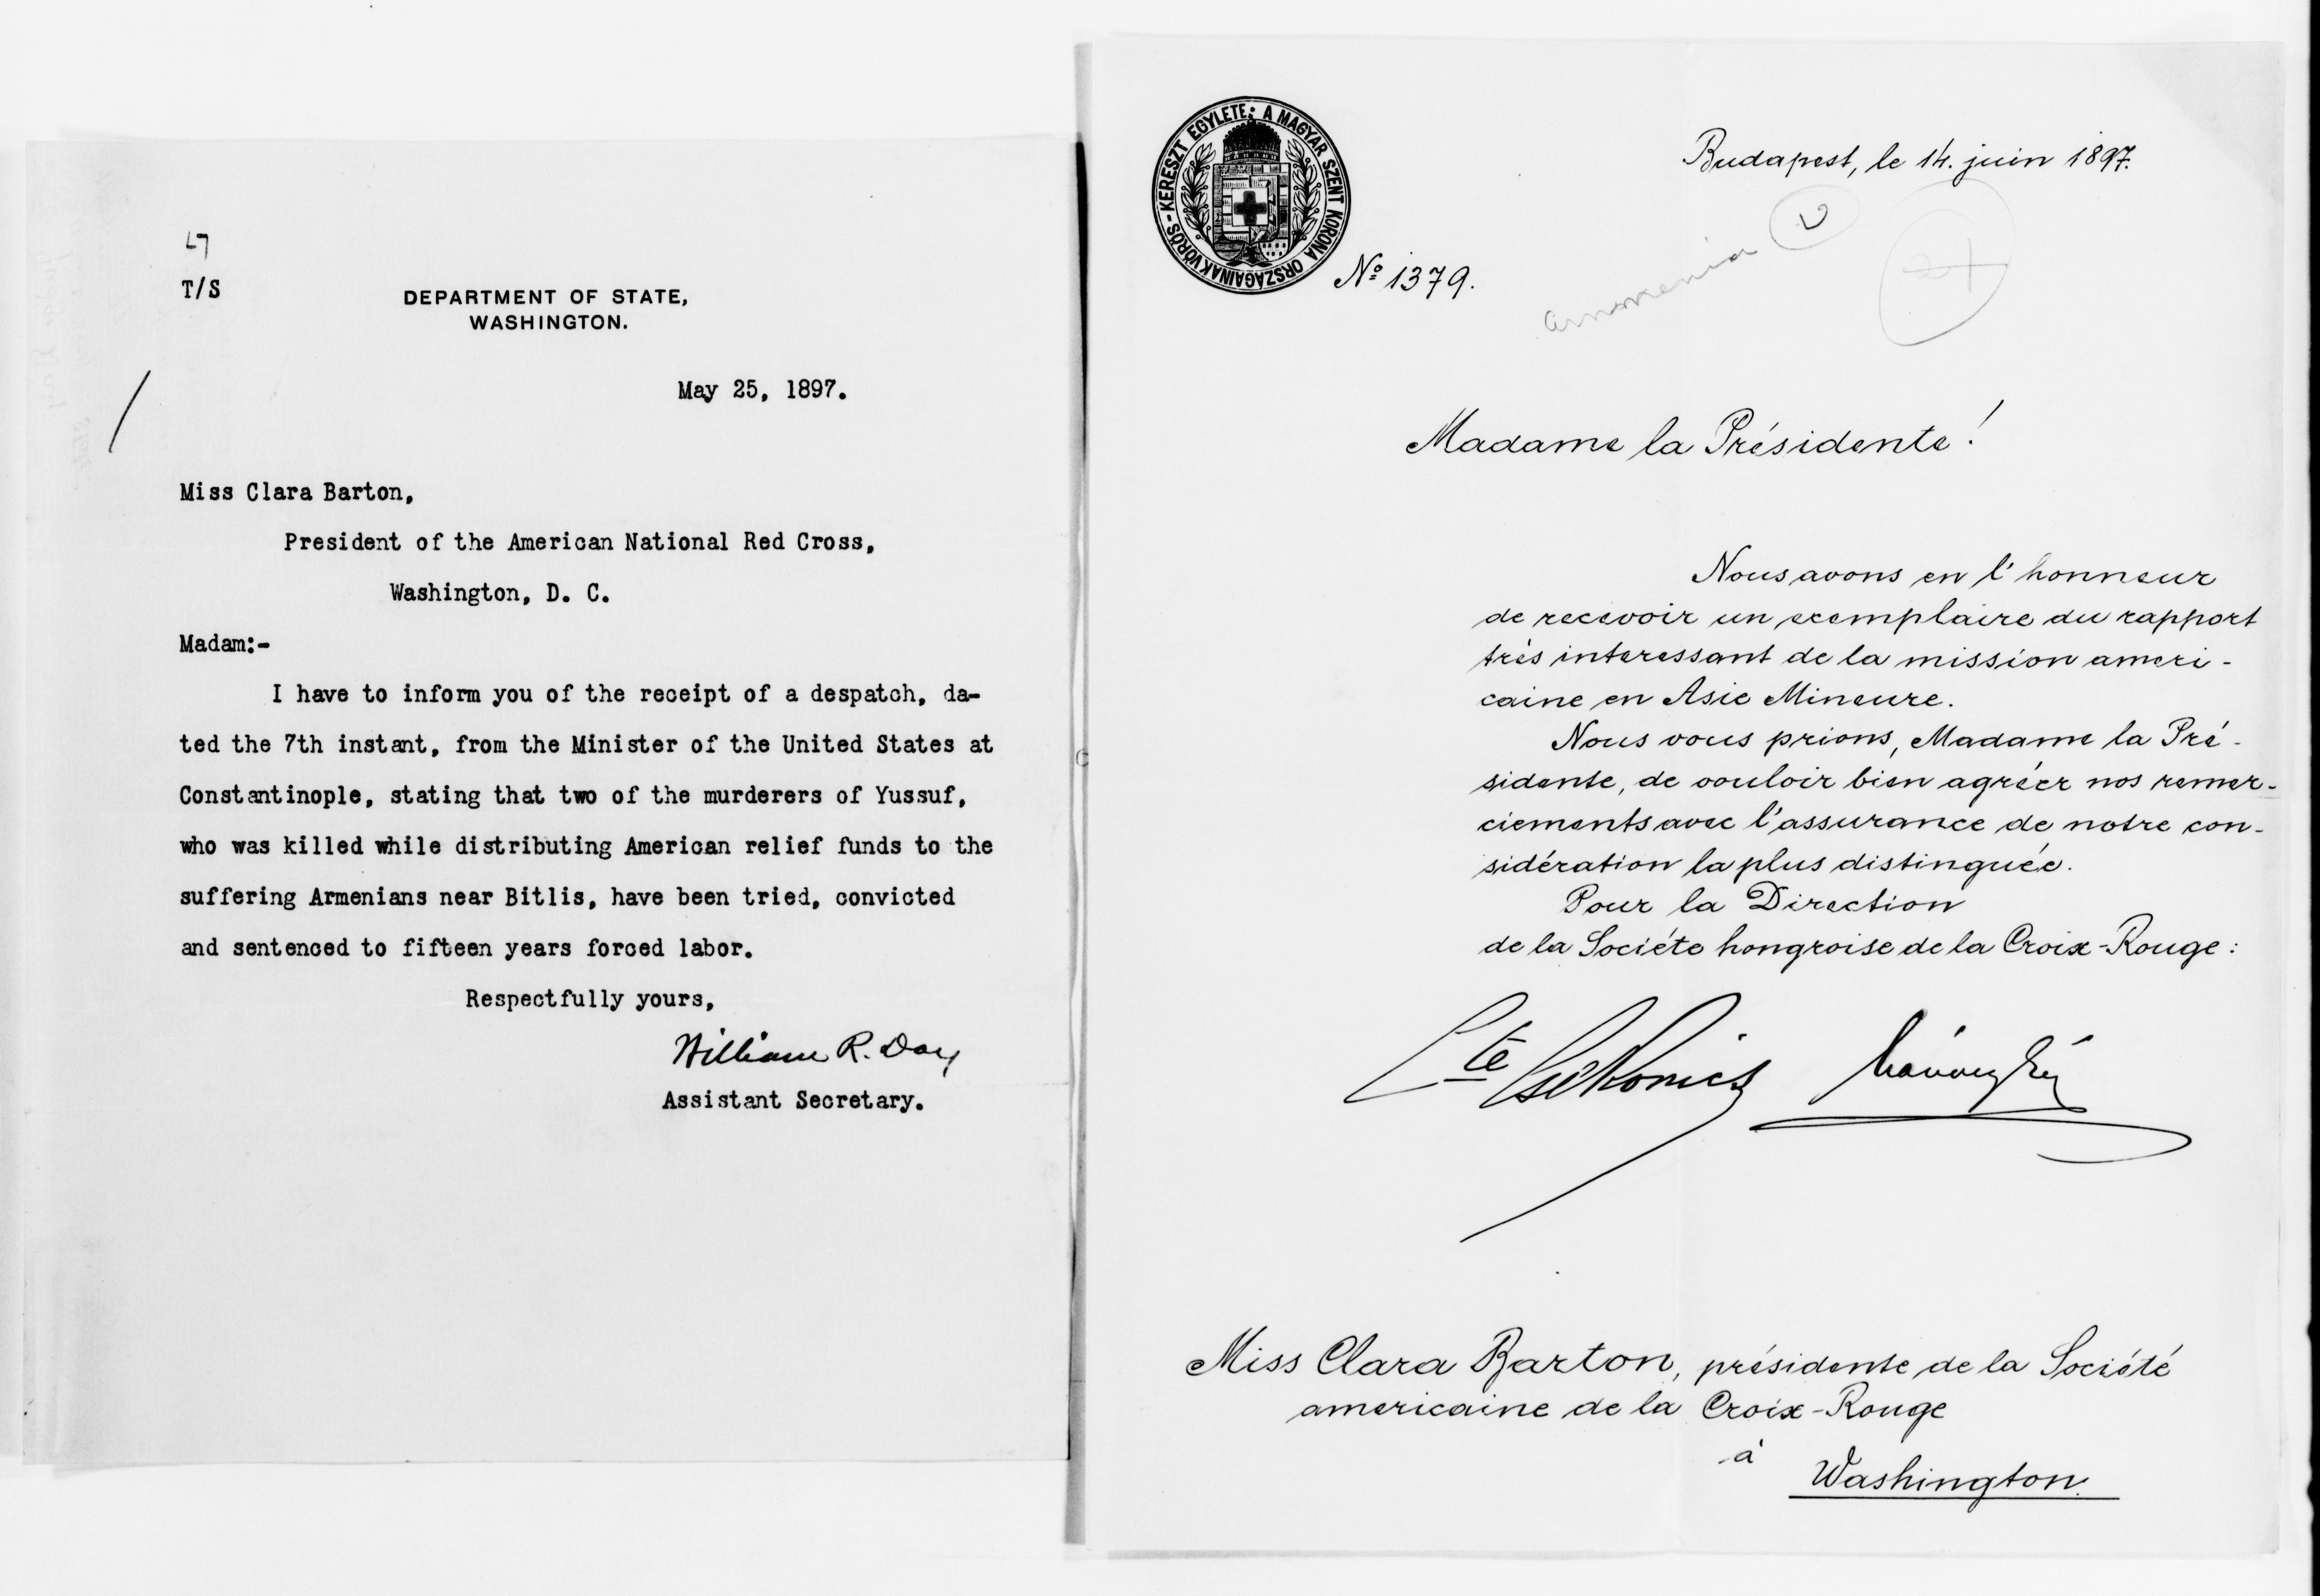 T/S
DEPARTMENT OF STATE,
WASHINGTON.
May 25, 1897.
Miss Clara Barton,
President of the American National Red Cross,
Washington, D. C.
Madam:-
I have to inform you of the receipt of a despatch, da-
ted the 7th instant, from the Minister of the United States at
Constantinople, stating that two of the murderers of Yussuf,
who was killed while distributing American relief funds to the
suffering Armenians near Bitlis, have been tried, convicted
and sentenced to fifteen years forced labor.
Respectfully yours,
William R. Day
Assistant Secretary.
A MAGYAR SZENT KORONA ORSZÁGAINAK VÖRÖS-KERESZT EGYLETE:
Budapest, le 14. juin 1897.
No 1379.
Madame la Présidente!
Nous avons eu l'honneur
de recevoir un exemplaire du rapport
très interessant de la mission ameri-
caine en Asie Mineure.
Nous vous prions, Madame la Pré-
sidente, de vouloir bien agréer nos remer-
ciements avec l'assurance de notre con-
sidération la plus distinguée.
Pour la Direction
de laOciéte hongroise de la Croix-Rouge:
Cte Csekonics
Miss Clara Barton, présidente de la Société
americaine de la Croix-Rouge
à
Washington.